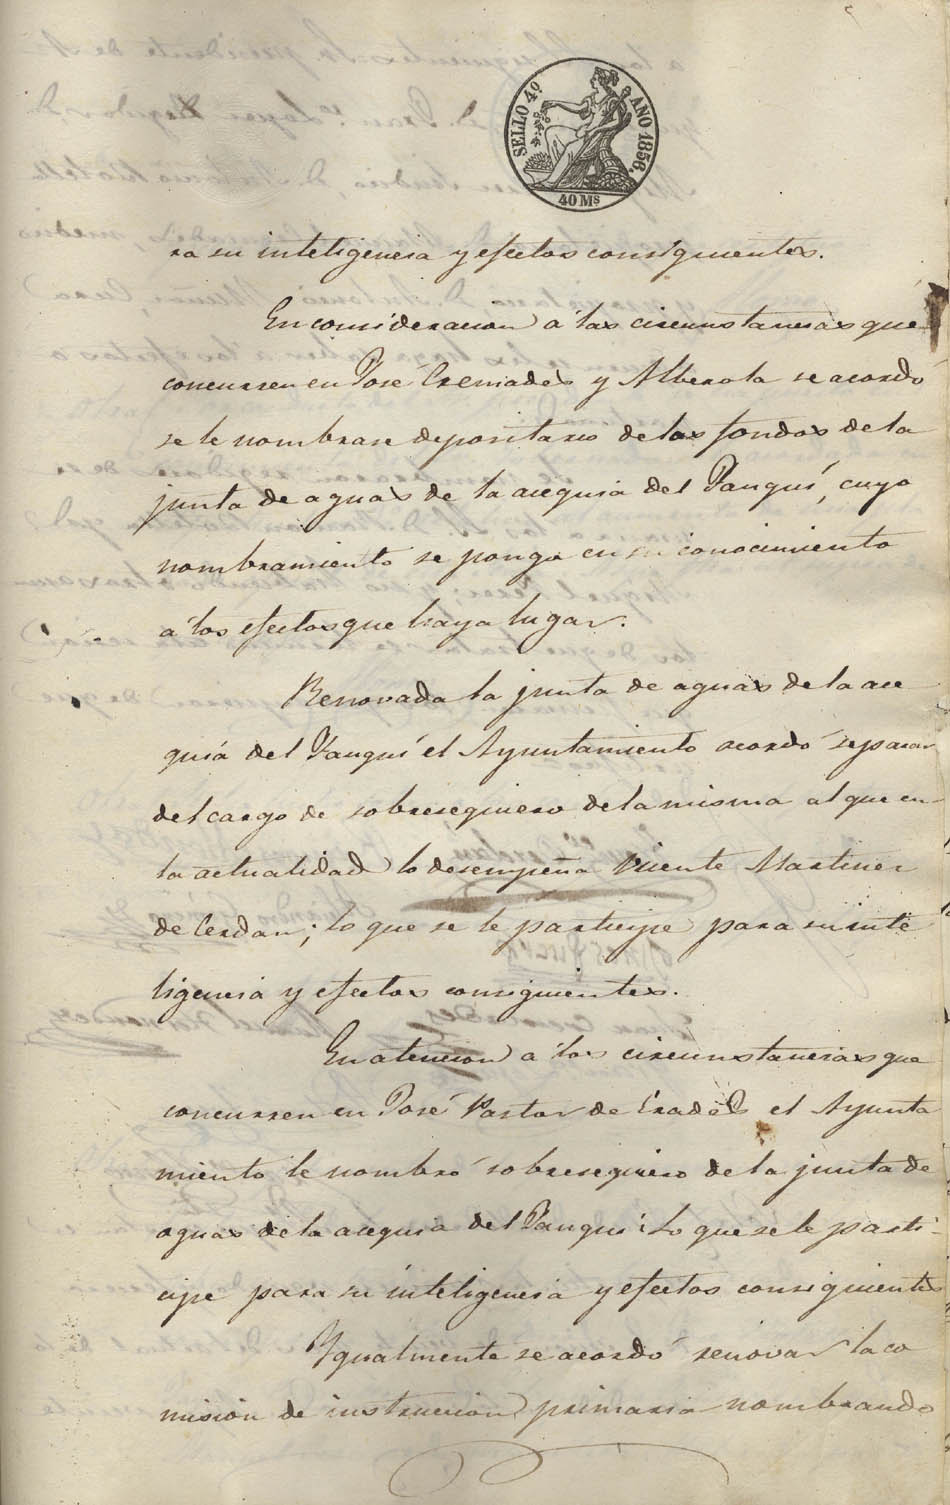 SELLO 4º AÑO 1856.
40 Ms
ra su inteligencia y efectos consiguientes.
En consideracion á las circunstancias que
concurren en José Cremades y Alberola se acordó
se le nombrase depositario de los fondos de la
junta de aguas de la acequia del Fanquí, cuyo
nombramiento se ponga en su conocimiento
á los efectos que haya lugar.
Renovada la junta de aguas de la ace
quia del Fanquí el Ayuntamiento acordó separar
del cargo de sobresequiero de la misma al que en
la actualidad lo desempeña Vicente Martinez
de Cerdan; lo que se le participe para su inte
ligencia y efectos consiguientes.
En atencion á las circunstancias que
concurren en José Pastor de the el Ayunta
miento le nombró sobresequiero de la junta de
aguas de la acequia del Fanquí: Lo que se le parti-
cipe para su inteligencia y efectos consiguientes
Ygualmente se acordó renovar la co
mision de instruccion primaria nombrando